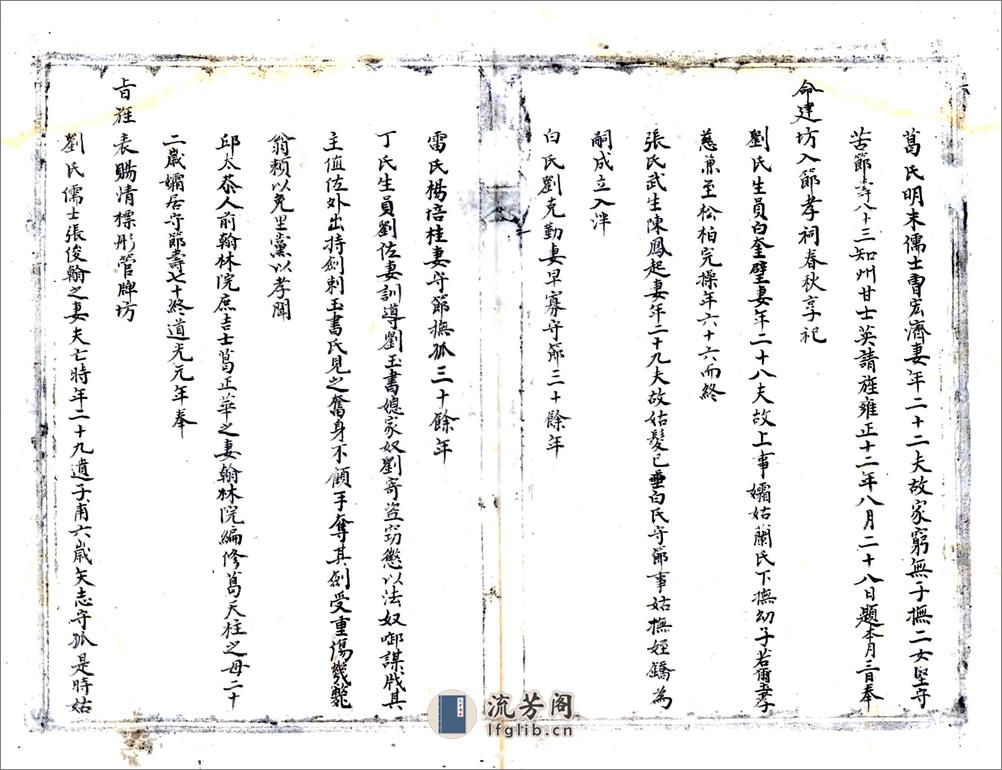 葛氏明末儒士曹宏濟妻年二十二夫故家窮無子撫二女堅守
苦節壽八十三知州甘士英請旌雍正十二年八月二十八日題本月三日奉
命建坊入節孝祠春秋享祀
劉氏生員白奎壁妻年二十八夫故上事孀姑蘭氏下撫幼子若爾孝
慈兼至松柏完操年六十六而終
張氏武生陳鳳起妻年二十九夫故姑髮已垂白氏守節事姑撫姪鐈為
嗣成立入泮
白氏劉克勤妻早寡守節三十餘年
雷氏楊培桂妻守節撫孤三十餘年
丁氏生員劉佐妻訓導劉玉書媳家奴劉寄盜窃懲以法奴啣謀戕其
主值佐外出持劍刺玉書氏見之奮身不顧手奪其劍受重傷幾斃
翁賴以免里黨以孝聞
邱太恭人前翰林院庶吉士葛正華之妻翰林院編修葛天柱之母二十
二歲孀居守節壽七十終道光元年奉
旨旌表賜清標彤管牌坊
劉氏儒士張俊翰之妻夫亡時年二十九遺子甫六歲矢志守孤是時姑
流芳阁
lfglib.cn